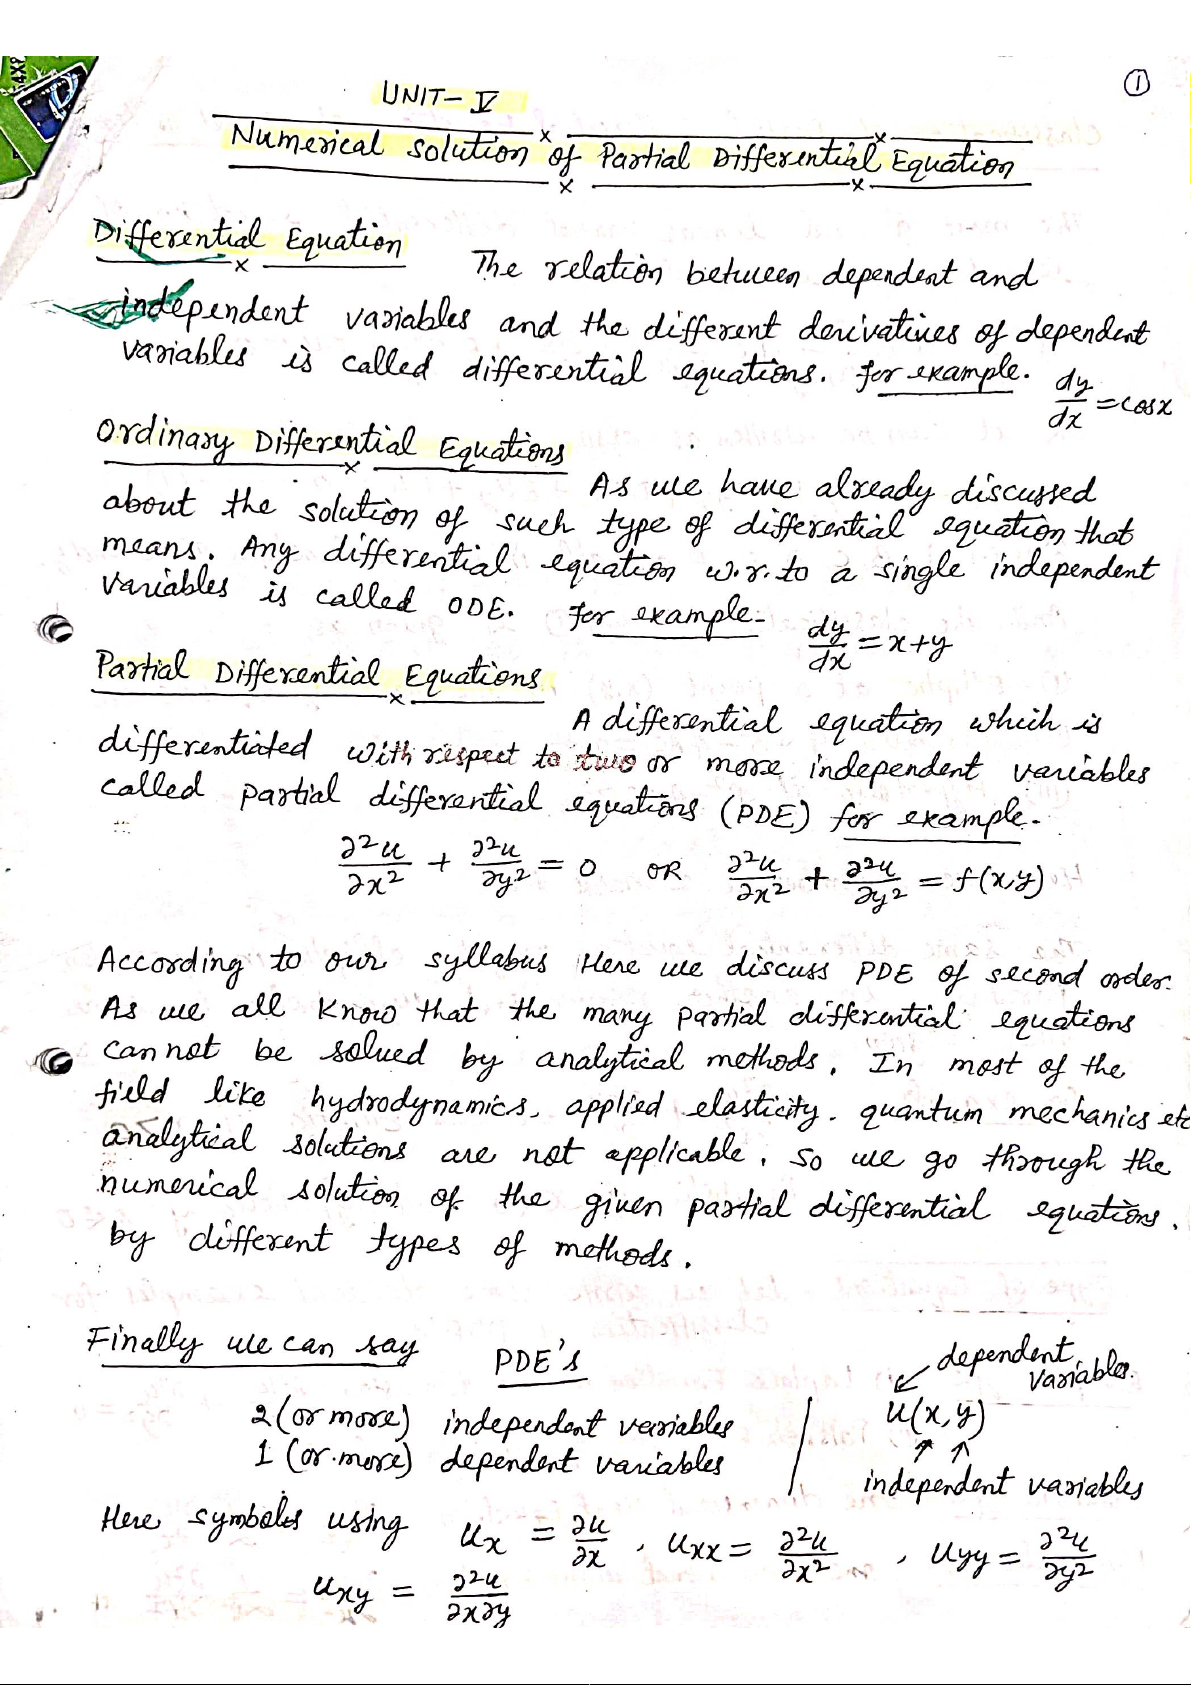 ①
UNIT- V
Numerical solution of Partial Differential Equation
Differential Equation
The relation between dependent and
independent variables and the different derivatives of dependent
variables is called differential equations. for example. dy/dx = cosx
Ordinary Differential Equations
As we have already discussed
about the solution of such type of differential equation that
means. Any differential equation w.r.to a single independent
variables is called ODE. for example- dy/dx = x+y
Partial Differential Equations
A differential equation which is
differentiated with respect to two or more independent variables
called partial differential equations (PDE) for example.
∂²u/∂x² + ∂²u/∂y² = 0 OR ∂²u/∂x² + ∂²u/∂y² = f(x,y)
According to our syllabus Here we discuss PDE of second order.
As we all Know that the many partial differential equations
can not be solved by analytical methods. In most of the
field like hydrodynamics, applied elasticity. quantum mechanics etc
analytical solutions are not applicable. so we go through the
numerical solution of the given partial differential equations.
by different types of methods.
Finally we can say PDE's
dependent variables.
2 (or more) independent variables
u(x,y)
1 (or more) dependent variables
independent variables
Here symbols using u_x = ∂u/∂x , u_xx = ∂²u/∂x² , u_yy = ∂²u/∂y²
u_xy = ∂²u/∂x∂y